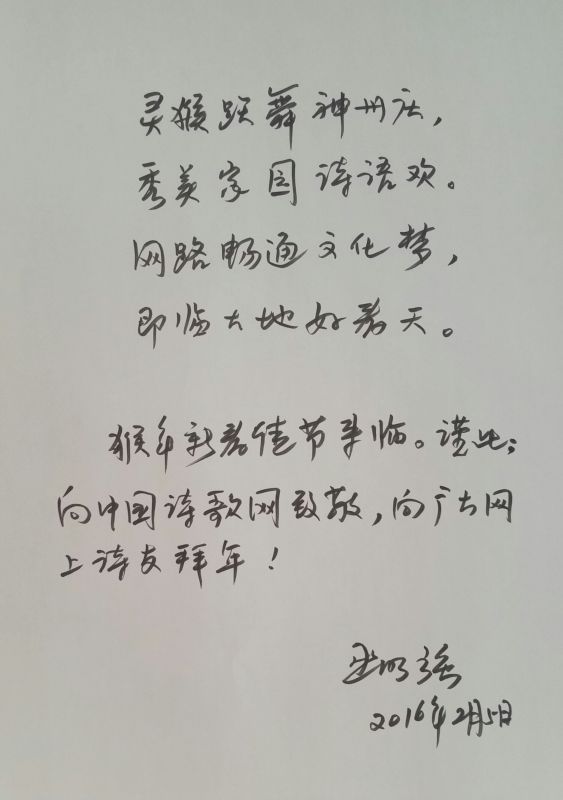 灵猴跃舞神州庆，
秀美家园诗语欢。
网路畅通文化梦，
即临大地好春天。
猴年新春佳节来临。谨此：
向中国诗歌网致敬，向广大网
上诗友拜年！
明强
2016年2月5日